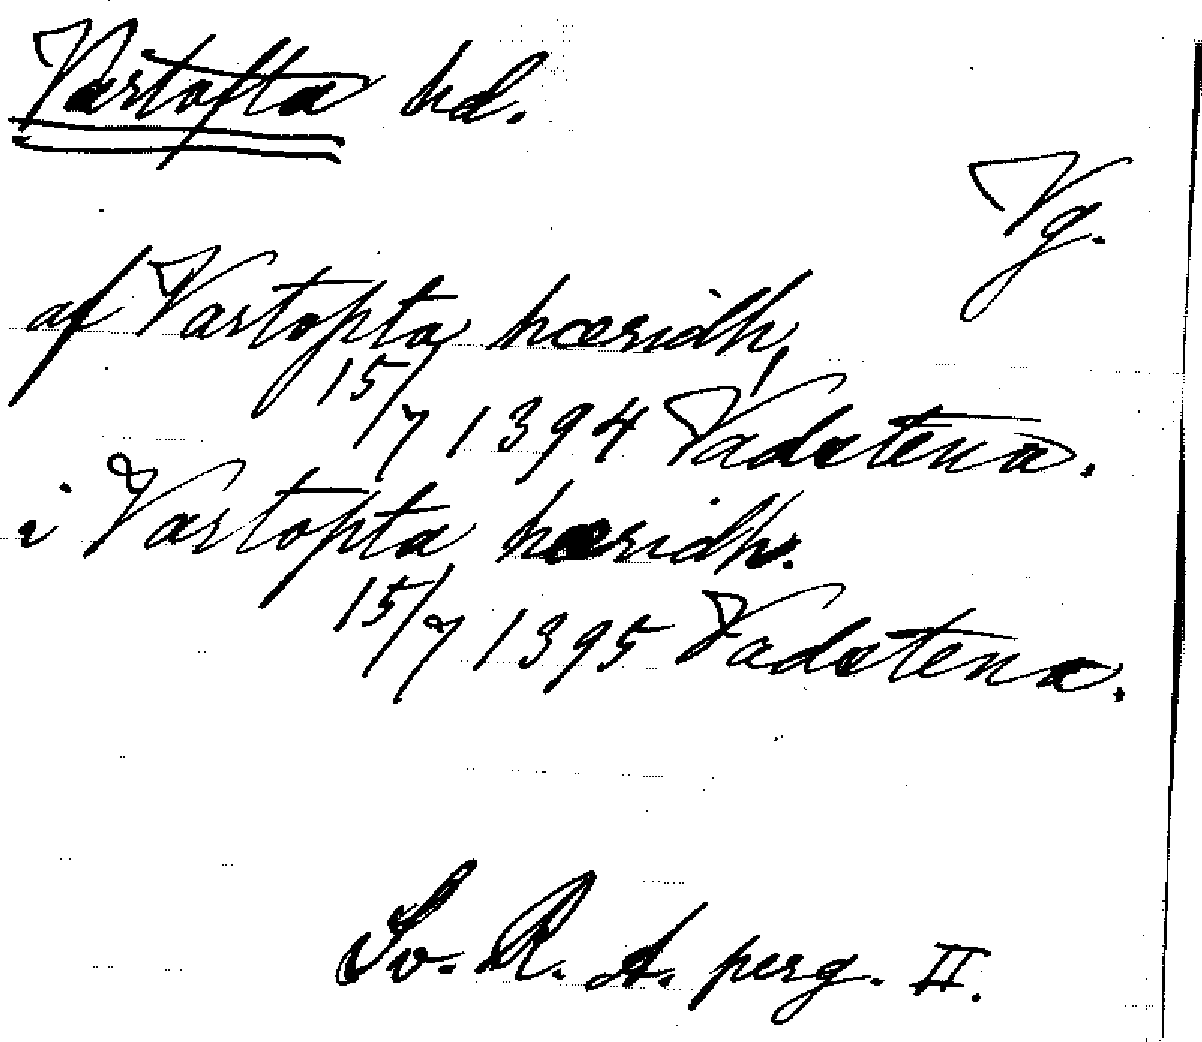 Vartofta hd.
Vg.
af Vartopta hæridh,
15/7 1394 Vadstena.
i Vartopta hæridh.
15/7 1395 Vadstena.
Sv. R. A. perg. II.